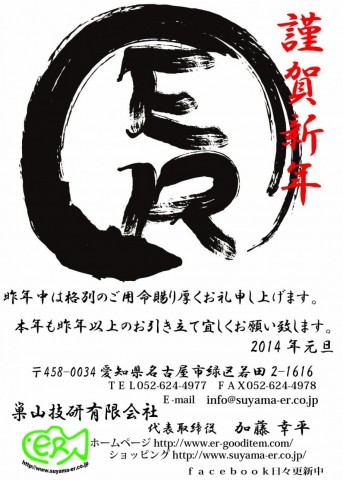 謹賀新年
ER
昨年中は格別のご用命賜り厚くお礼申し上げます。
本年も昨年以上のお引き立て宜しくお願い致します。
2014年元旦
〒458-0034愛知県名古屋市緑区若田2-1616
TEL052-624-4977 FAX052-624-4978
E-mail info@suyama-er.co.jp
巣山技研有限会社
代表取締役 加藤 幸平
ER
http://www.suyama-er.co.jp
ホームページ http://www.er-gooditem.com/
ショッピング http://www.suyama-er.co.jp/
facebook日々更新中